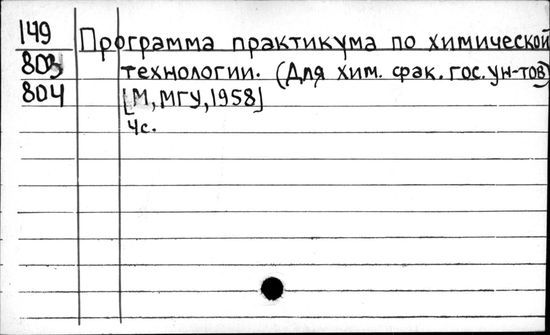 149 Программа практикума по химической
803 технологии. (Для хим. фак. гос. ун-тов)
804 [М, МГУ, 1958]
4с.